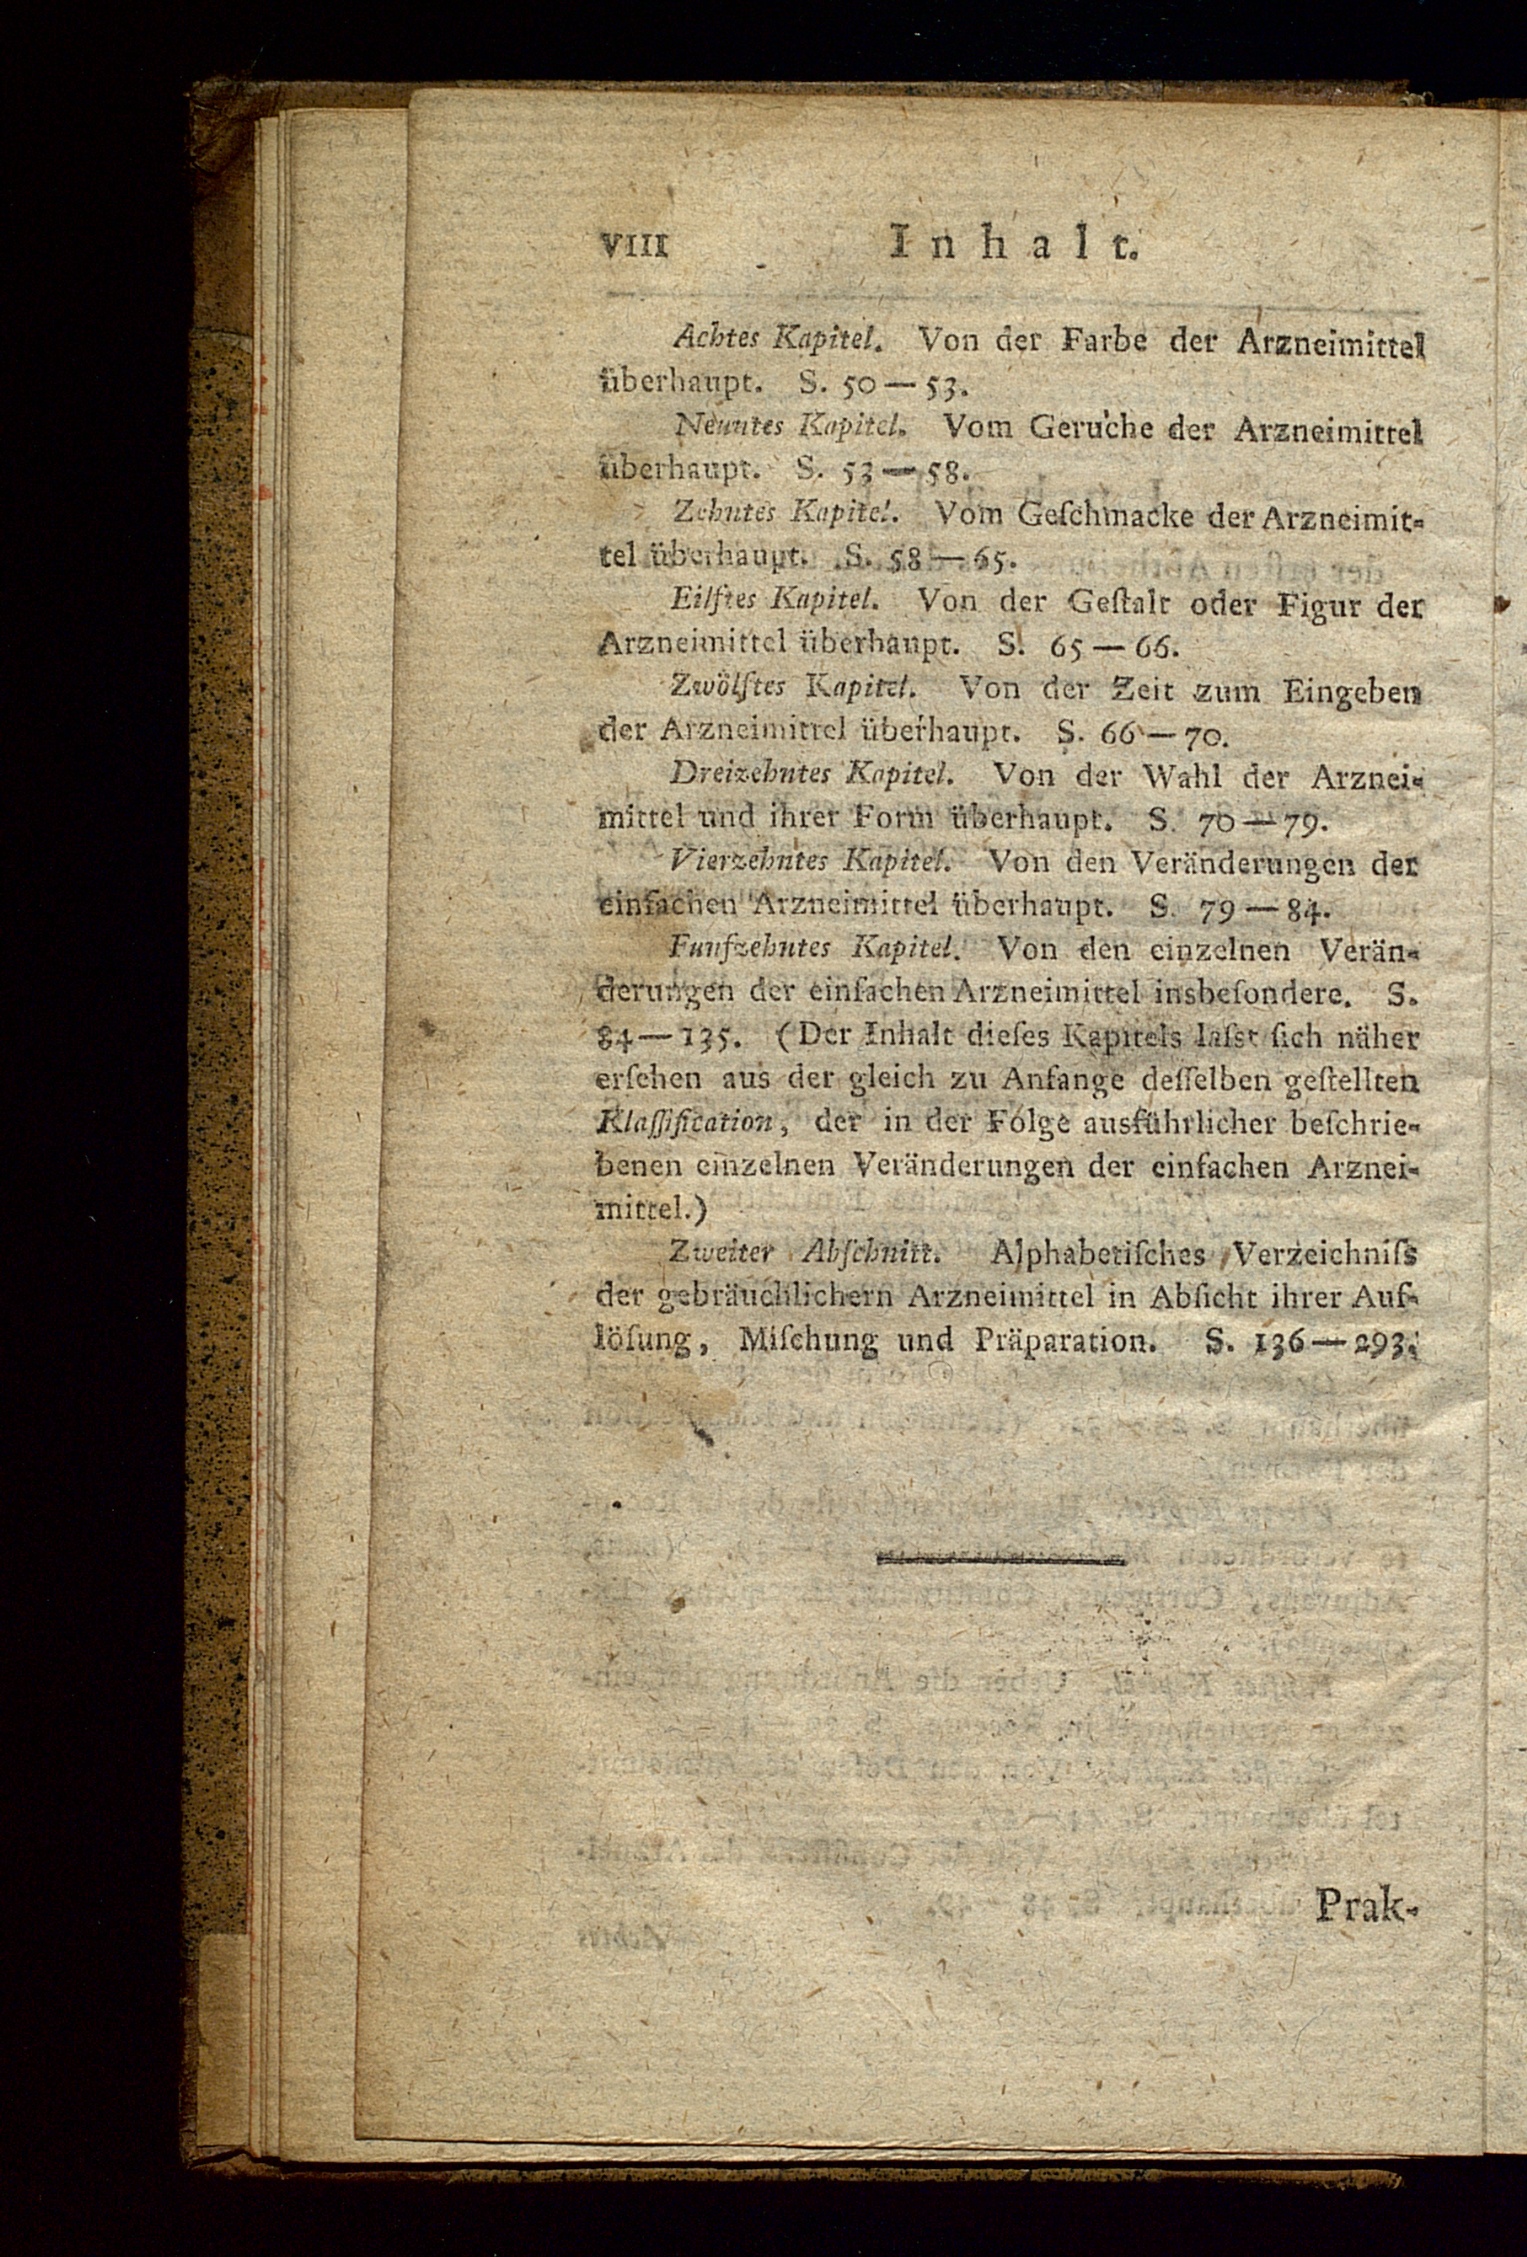 VIII Inhalt.
Achtes Kapitel. Von der Farbe der Arzneimittel
überhaupt. S. 50 — 53.
Neuntes Kapitel. Vom Geruche der Arzneimittel
überhaupt. S. 53 — 58.
Zehntes Kapitel. Vom Geſchmacke der Arzneimit-
tel überhaupt. S. 58 — 65.
Eilftes Kapitel. Von der Geſtalt oder Figur der
Arzneimittel überhaupt. S. 65 — 66.
Zwölftes Kapitel. Von der Zeit zum Eingeben
der Arzneimittel überhaupt. S. 66 — 70.
Dreizehntes Kapitel. Von der Wahl der Arznei-
mittel und ihrer Form überhaupt. S. 70 — 79.
Vierzehntes Kapitel. Von den Veränderungen der
einfachen Arzneimittel überhaupt. S. 79 — 84.
Funfzehntes Kapitel. Von den einzelnen Verän-
derungen der einfachen Arzneimittel insbeſondere. S.
84 — 135. (Der Inhalt dieſes Kapitels laſst ſich näher
erſehen aus der gleich zu Anfange deſſelben geſtellten
Klaſſification, der in der Folge ausführlicher beſchrie-
benen einzelnen Veränderungen der einfachen Arznei-
mittel.)
Zweiter Abſchnitt. Alphabetiſches Verzeichniſs
der gebräuchlichern Arzneimittel in Abſicht ihrer Auf-
löſung, Miſchung und Präparation. S. 136 — 293.
Prak-